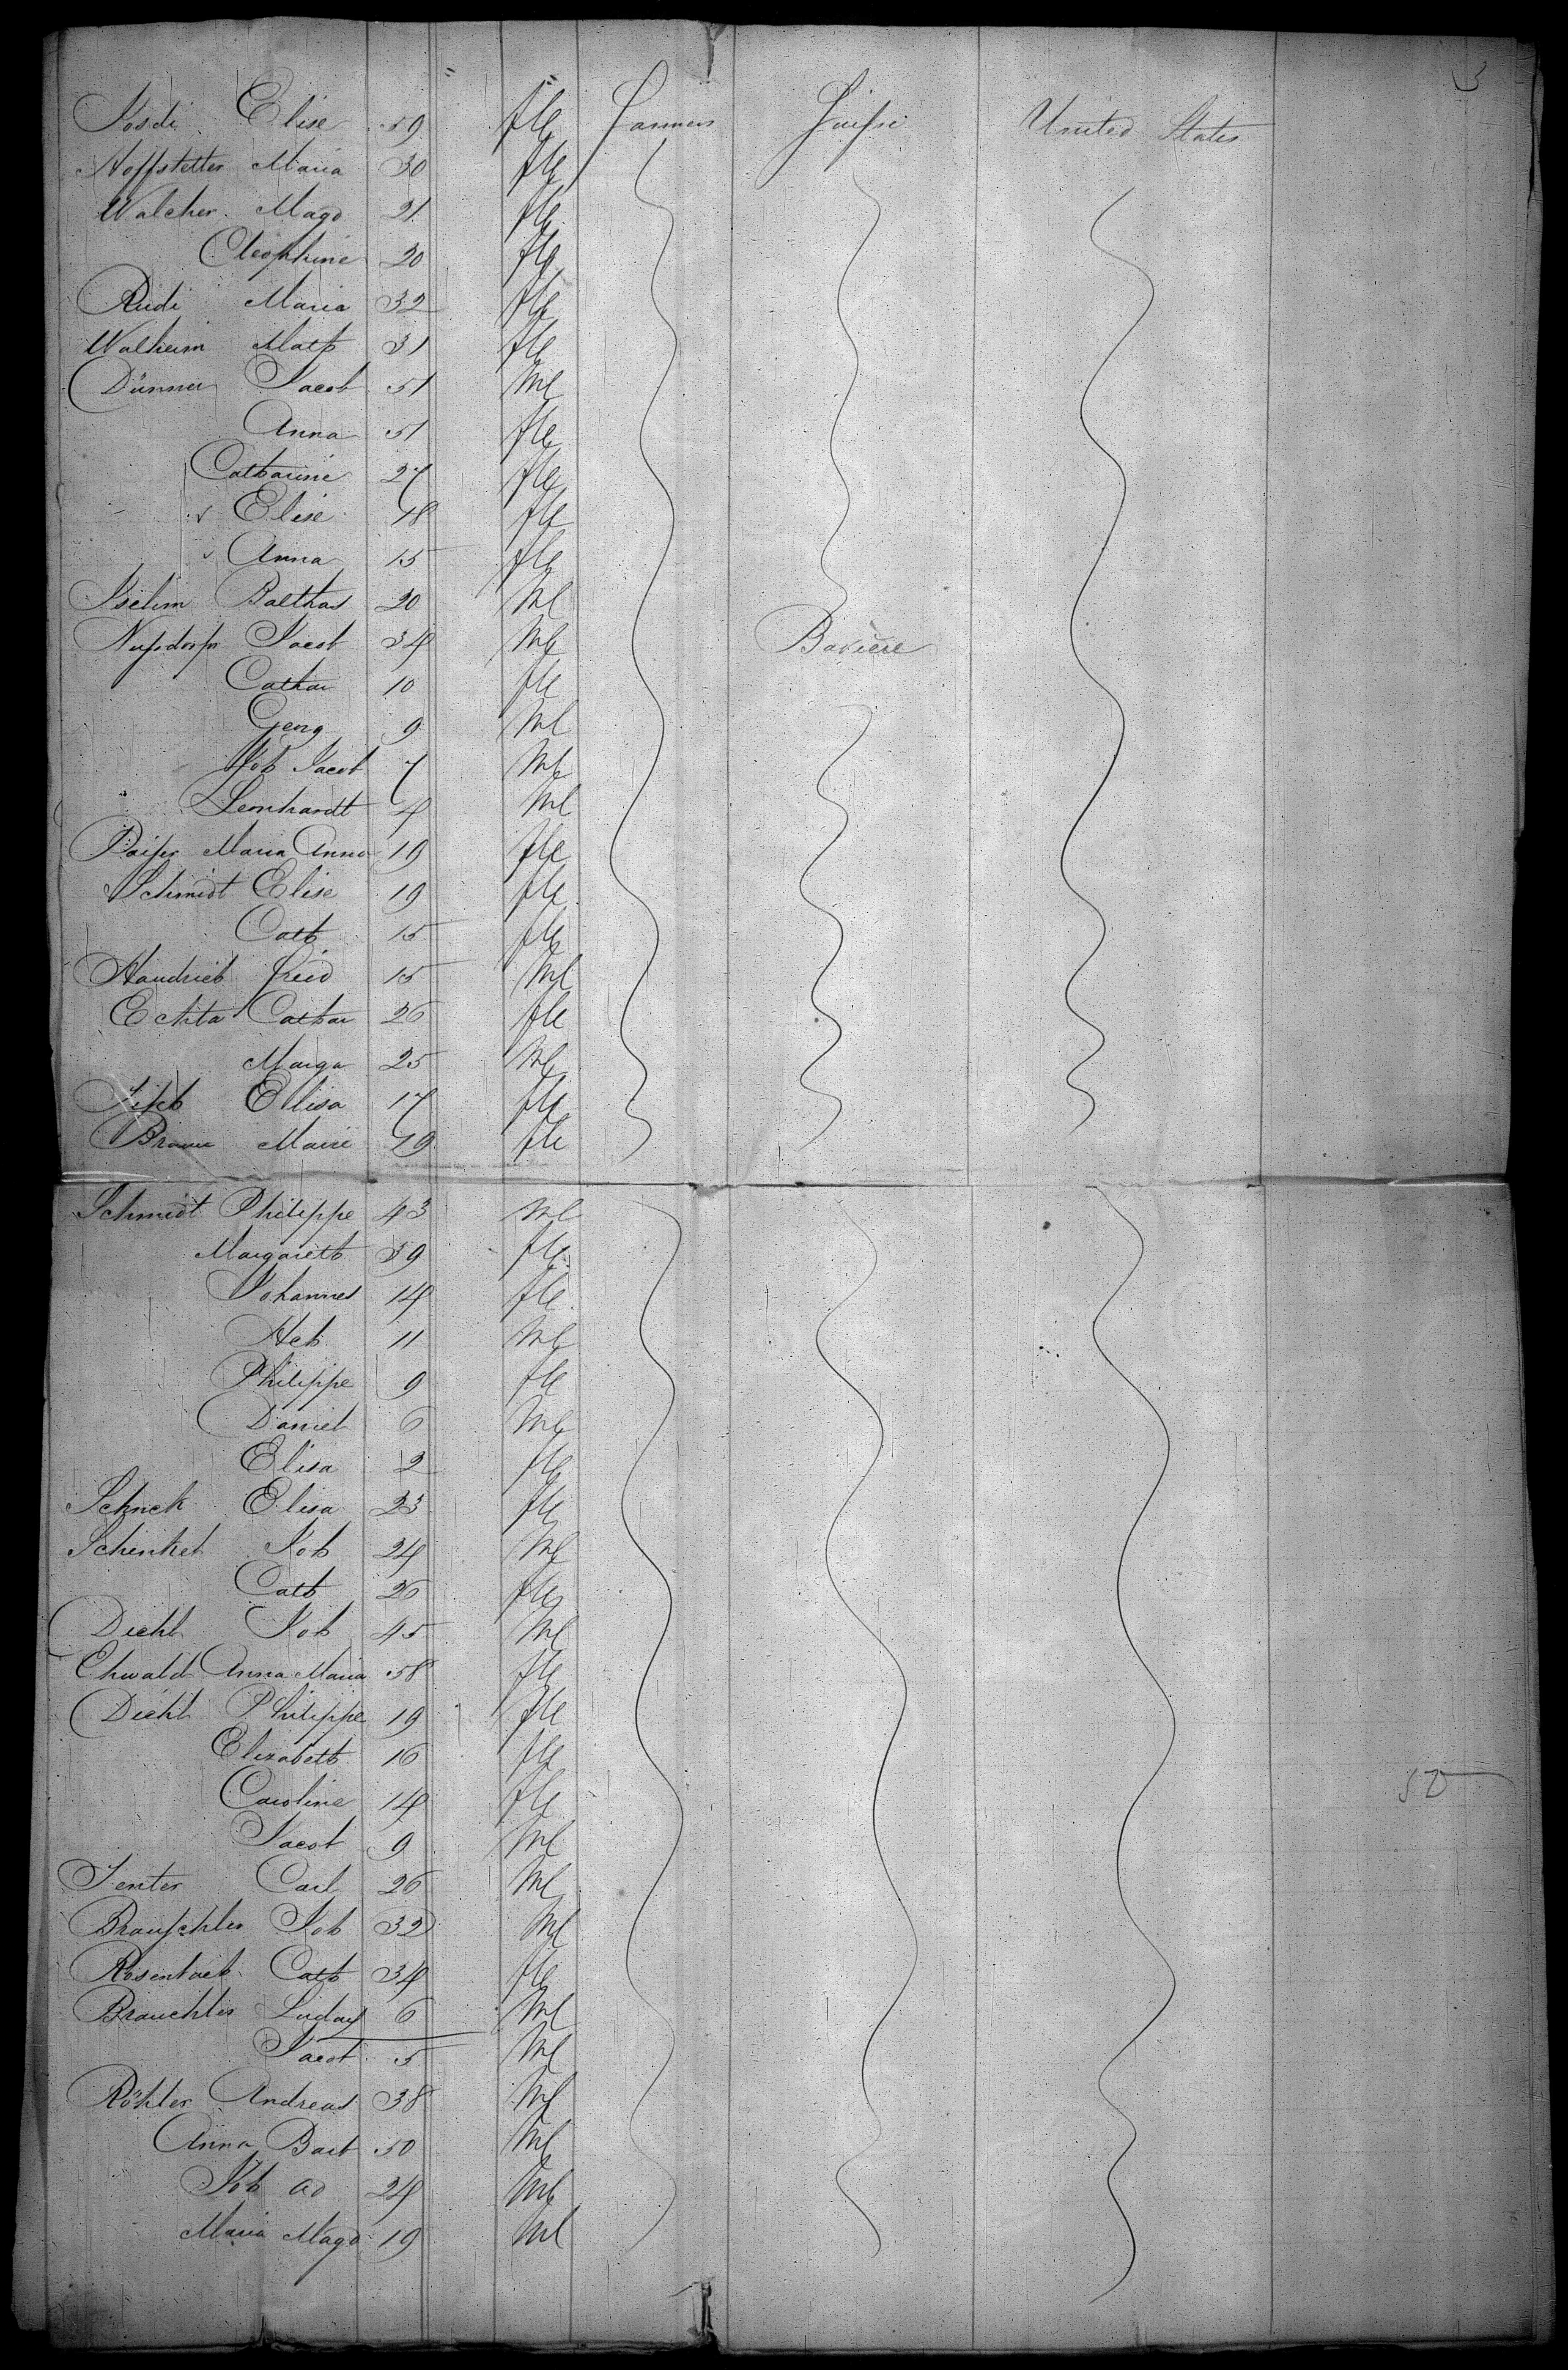 3
Josdi Elise 59 fle Farmers Suisse United States
Hoffstetter Maria 30 fle
Walcher Magd 21 fle
Cleophine 20 fle
Rudi Maria 32 fle
Walheim Math 31 fle
Dünner Jacob 51 Ml
Anna 51 fle
Catharine 27 fle
Elise 18 fle
Anna 15 fle
Iselim Balthas 20 Ml
Nussdorfer Jacob 34 Ml Baviere
Cathar 10 fle
Georg 9 Ml
Joh Jacob 7 Ml
Lernhardt 4 Ml
Paifer Maria Anna 19 fle
Schmidt Elise 19 fle
Cath 15 fle
Haudrich fried 15 Ml
Echta Cathar 26 fle
Marga 25 Ml
Elisa 17 fle
Braun Marie 49 fle
Schmidt Philippe 43 Ml
Margareth 39 fle
Johannes 14 fle
Heh 11 Ml
Philippe 9 fle
Daniel 6 Ml
Elisa 2 fle
Schneck Elisa 23 fle
Schenkel Joh 24 Ml
Cath 26 fle
Diehl Joh 45 Ml
Ehwald Anna Maria 58 fle
Diehl Philippe 19 fle
Elizabeth 16 fle
Caroline 14 fle 50
Jacob 9 Ml
Senter Carl 26 Ml
Brauchler Joh 32 Ml
Rosenbach Cath 34 fle
Brauchler Ludag 6 Ml
Jacob 5 Ml
Röhler Andreas 38 Ml
Anna Barb 50 Ml
Joh ad 24 Ml
Maria Magd 19 Ml